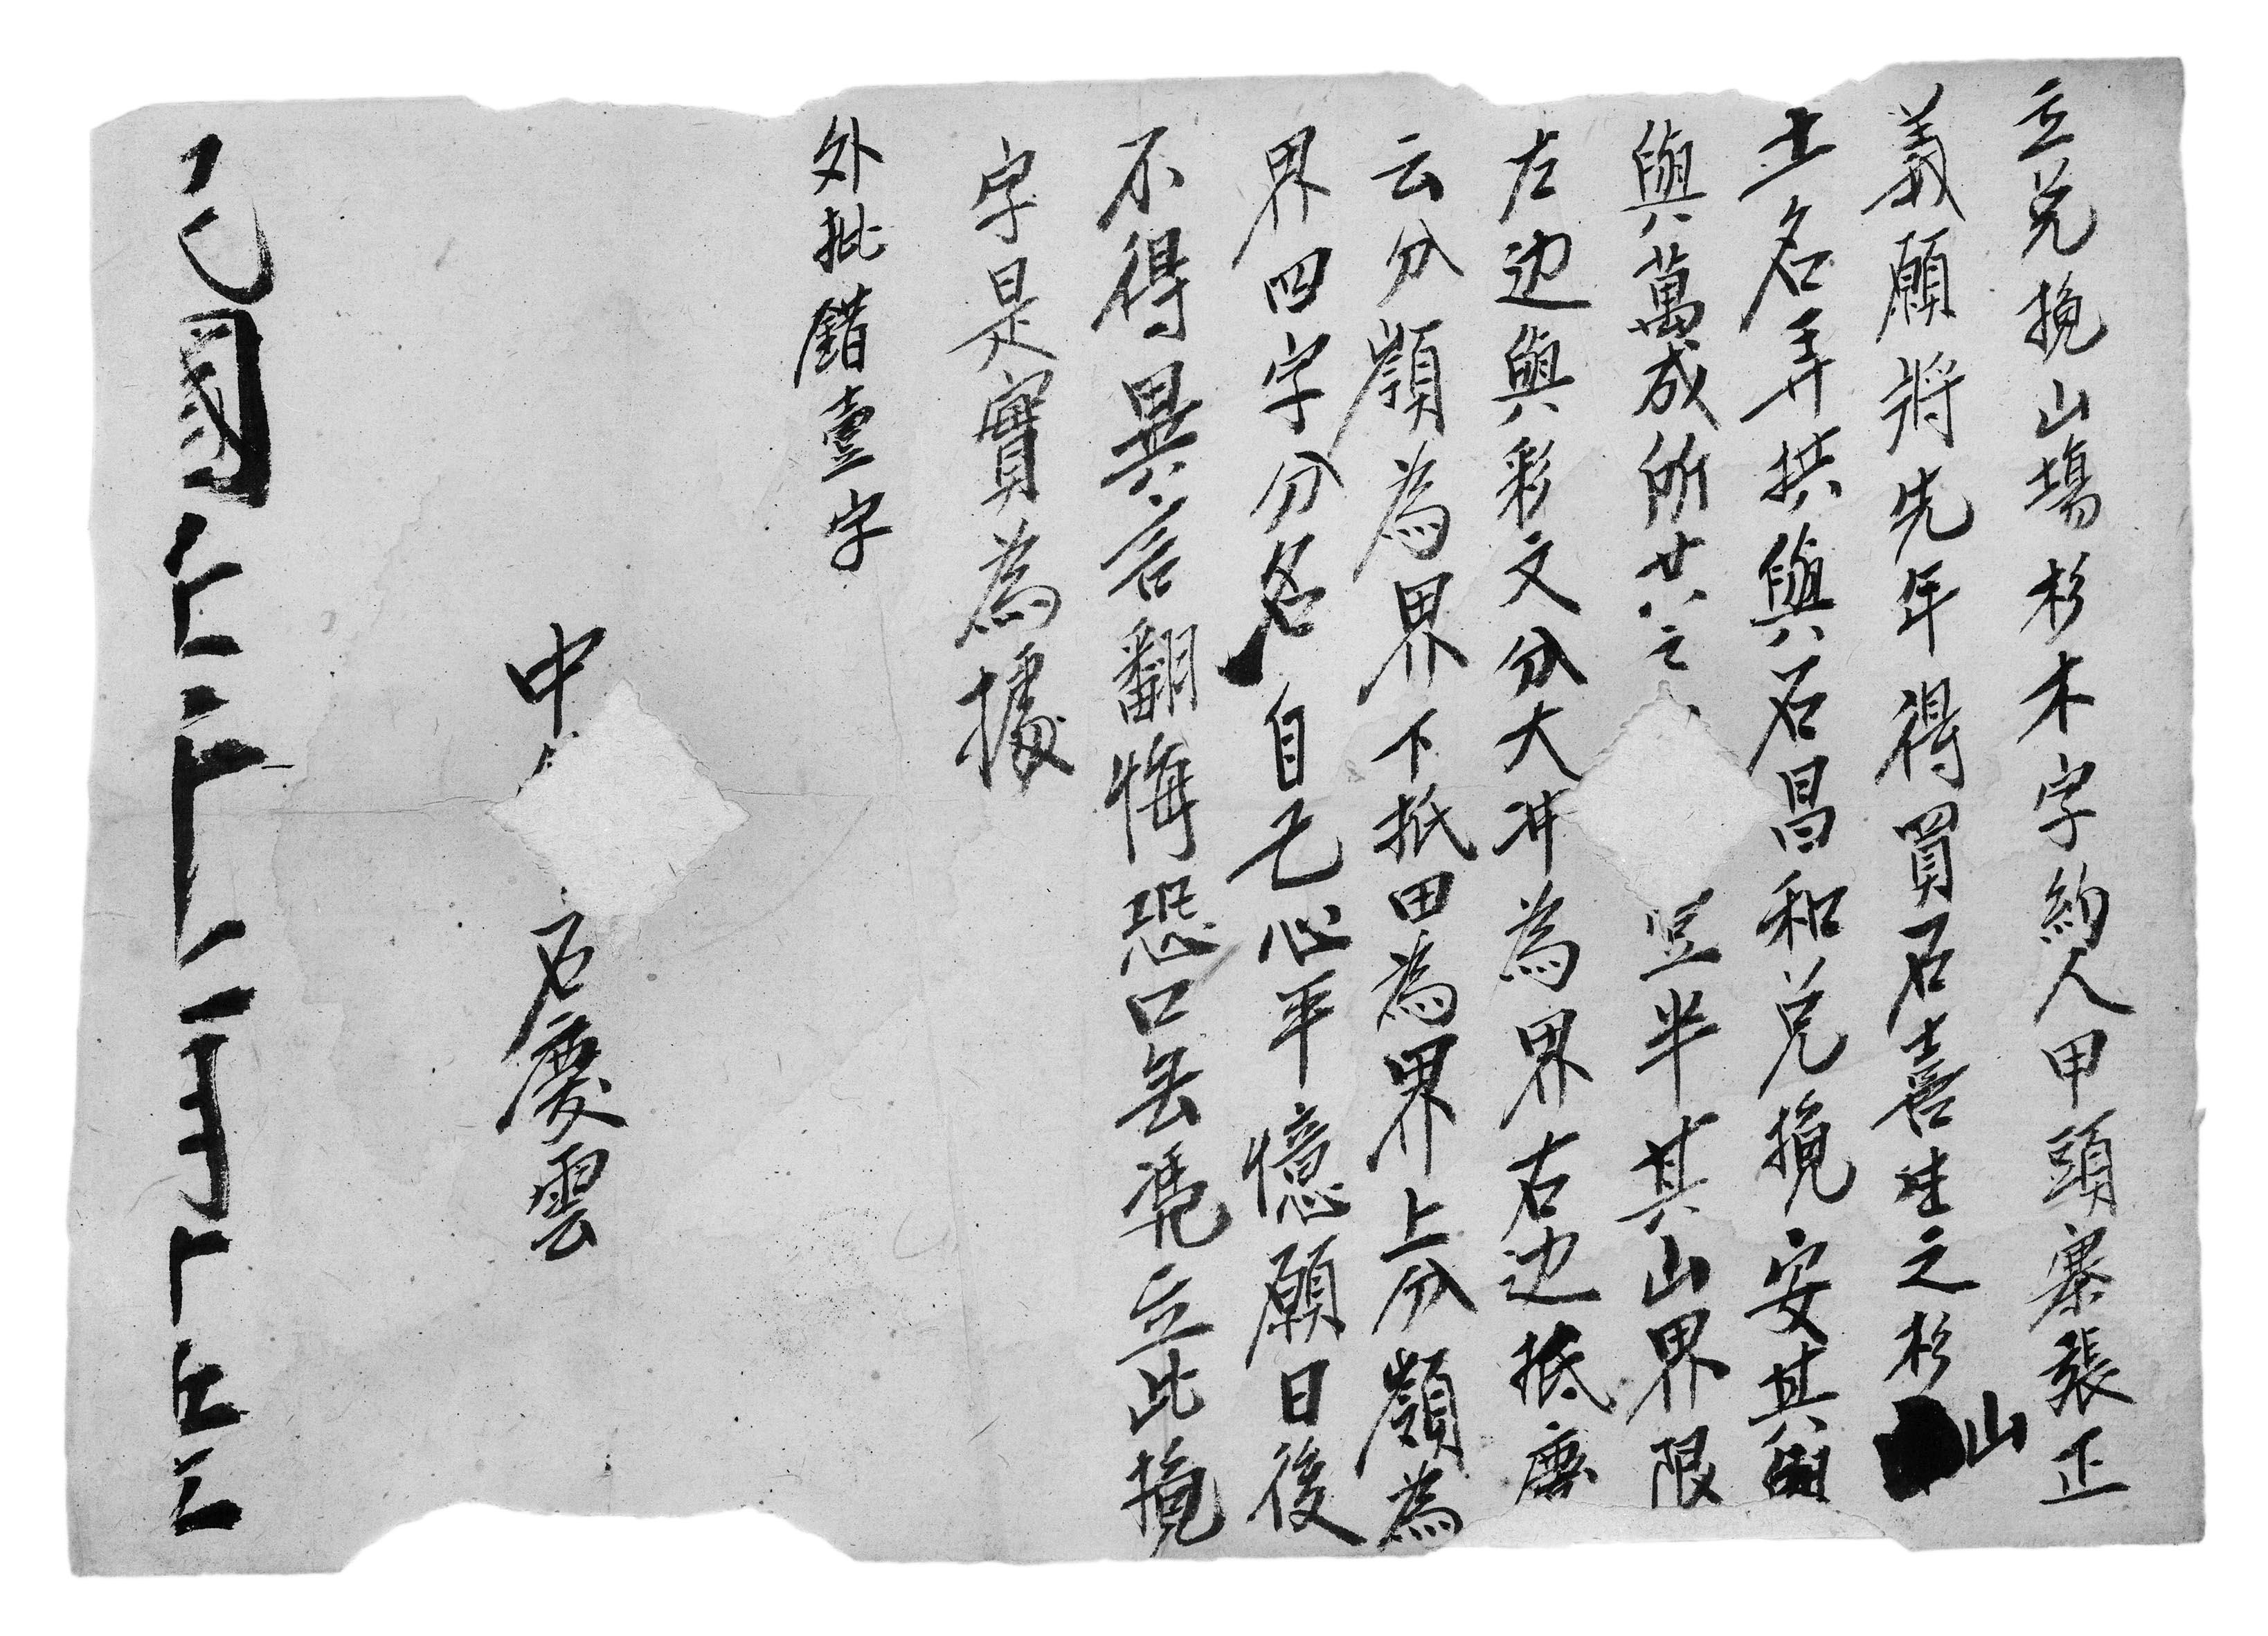 立兑換山塲杉木字約人甲頭寨張正
義願將先年得買石喜生之杉山
土名弄拱與石昌和兑換安其與
與萬成所廿六之 豆半其山界限
左边與彩文分大冲為界右边抵唐
云分嶺為界下抵田為界上分嶺為
界四字分名自己心平憶願日後
不得異言翻悔恐口無憑立此換
字是實為據
外批錯壹字
中 石慶雲